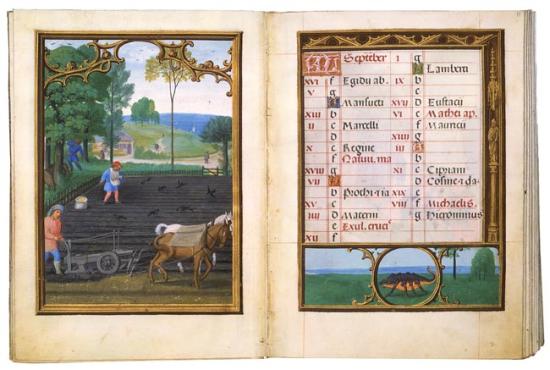 KL September
xvi f Egidii ab.
v g
A Mansueti
xiii b
ii c Marcelli
d
x e Regine
f Natiui. ma
xviii g
vii A
b Prothi·i·ia
xv c
iiii d Materni
e Exul. cruci
xii f
i g
A Lamberti
ix b
c
xvii d Eustacii
vi e Mathei ap.
f Mauricii
xiiii g
iii A
b
xi c Cipriani
d Cosme·i·da.
xix e
viii f Michaelis.
g Hieronimus